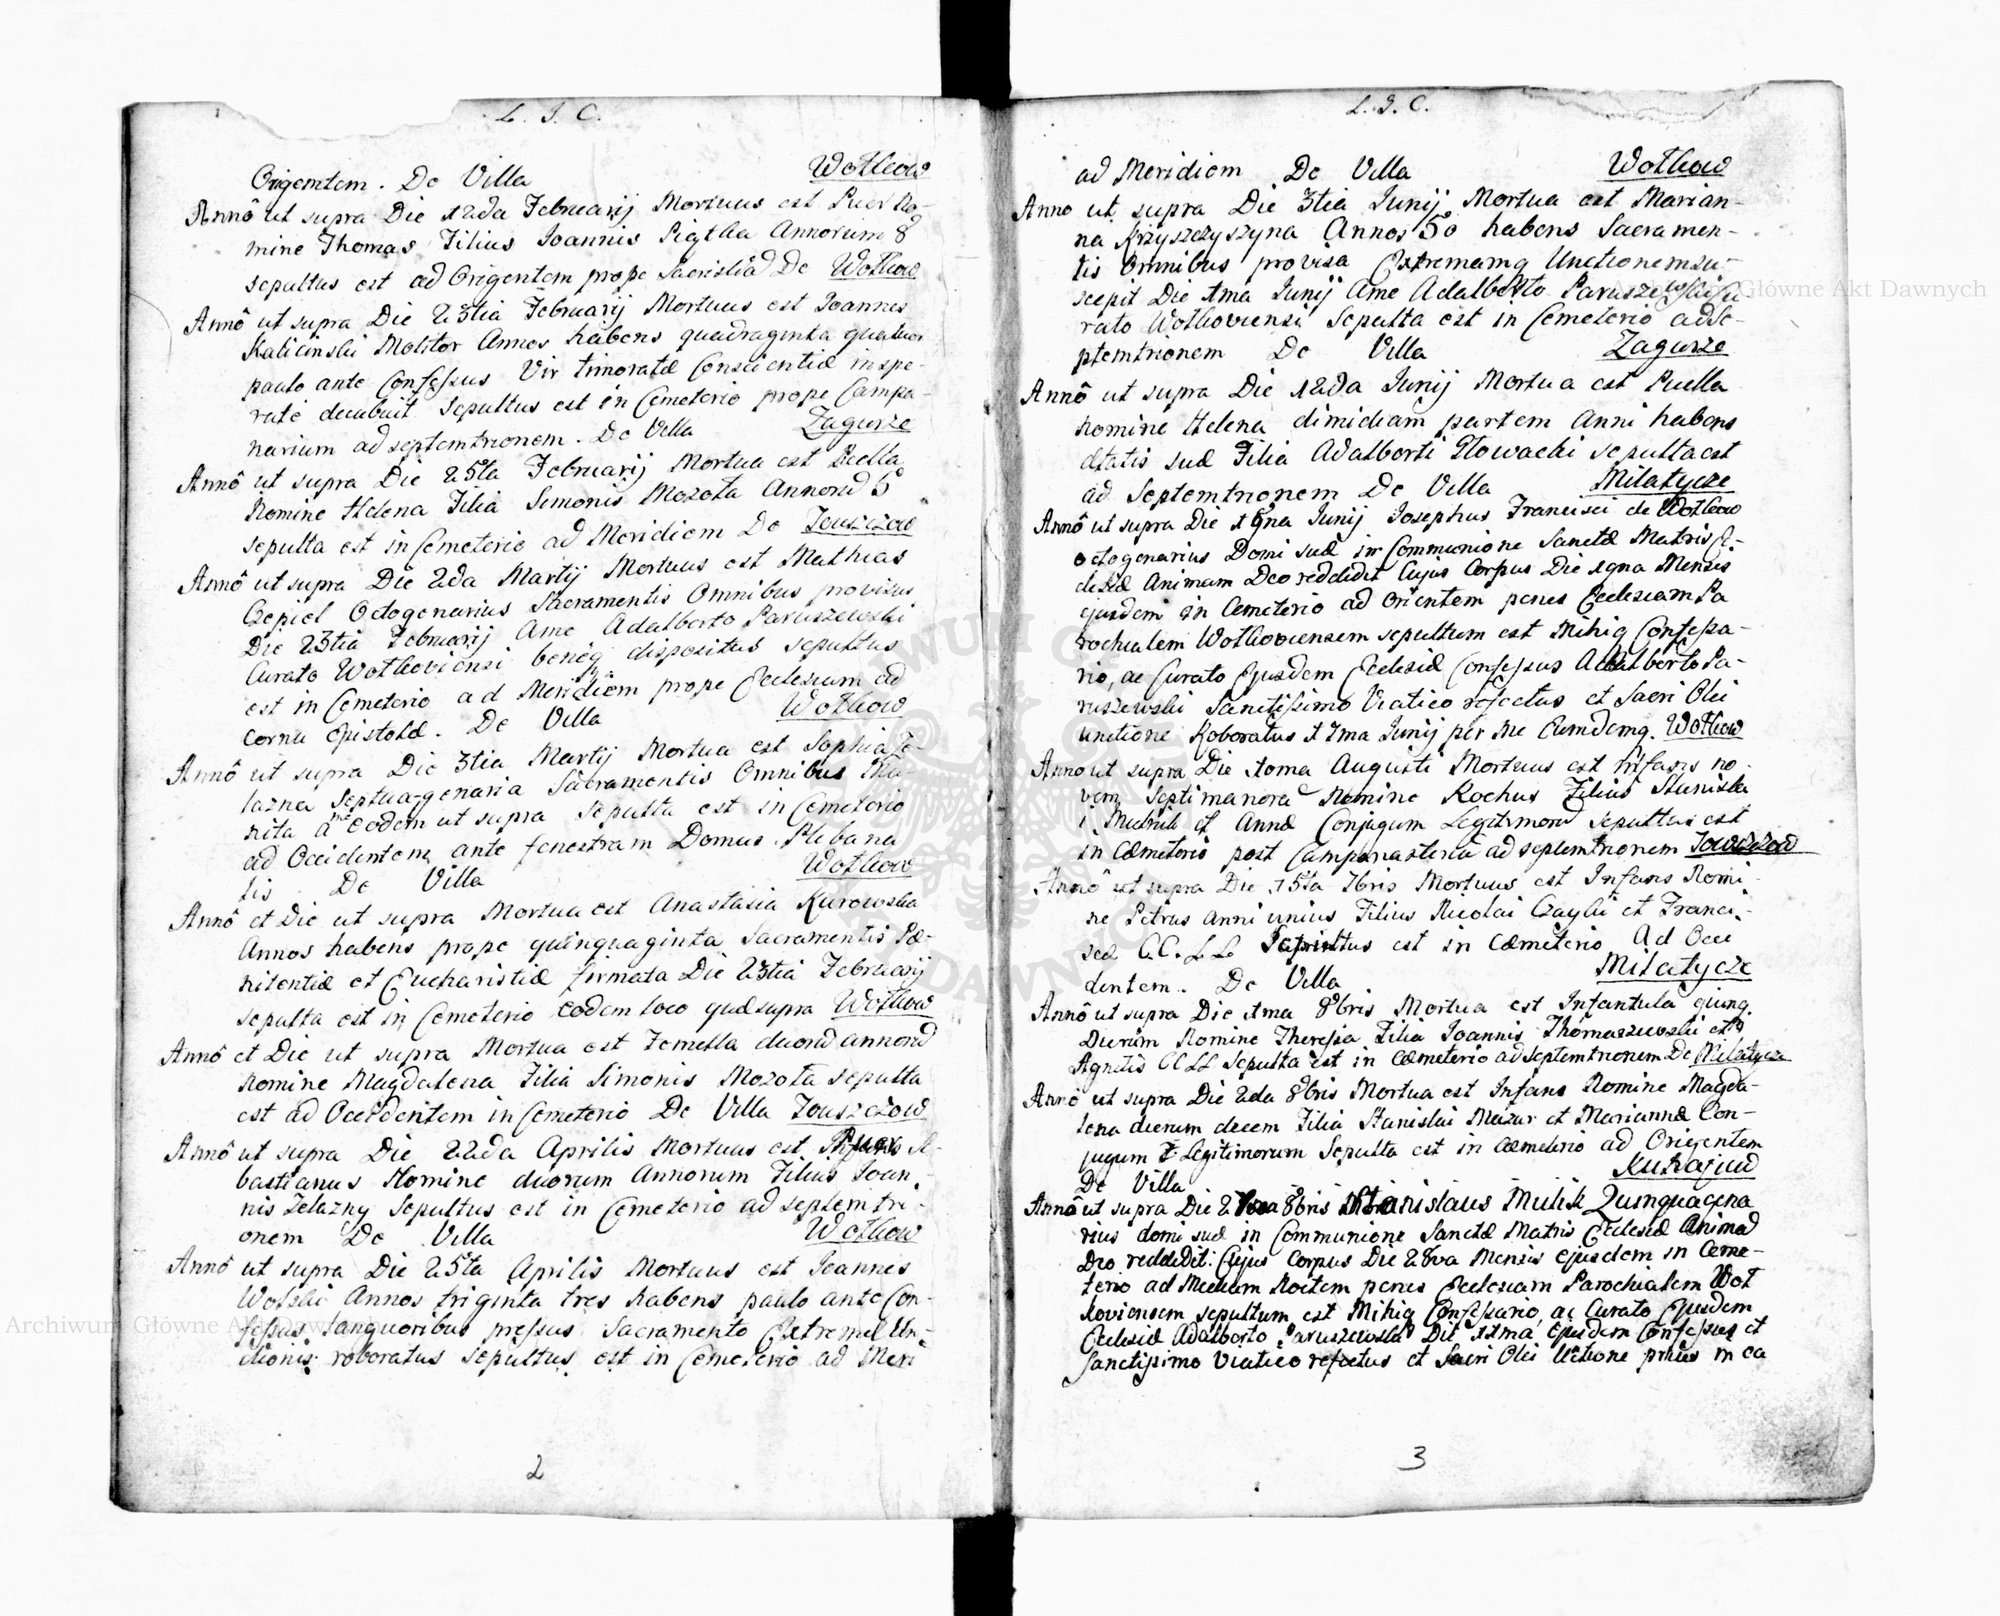 L. J. C.
Origentem. De Villa Wołkow
Annô ut supra Die 12da Februarij Mortuus est Puer No-
mine Thomas Filius Joannis Piątka Annorum 8
sepultus est ad Origentem prope Sacristiã De Wołkow
Annô ut supra Die 23tia Februarij Mortuus est Joannes
Kalicinski Molitor Annos habens quadraginta quatuor
paulo ante Confessus Vir timoratæ Conscientiæ inspe-
rate decubuit Sepultus est in Cemeterio prope Campa-
narium ad septemtrionem. De Villa Zagurze
Annô ut supra Die 25ta Februarij Mortua est Puella
Nomine Helena Filia Simonis Mozota Annorũ 5
sepulta est in Cemeterio ad Meridiem De
Annô ut supra Die 2da Martij Mortuus est Mathias
Czepiel Octogenarius Sacramentis Omnibus provisus
Die 23tia Februarij A me Adalberto Paruszewski
Curato Wołkoviensi beneq dispositus sepultus
est in Cemeterio ad Meridiem prope Ecclesiam ad
cornu Epistolæ. De Villa Wołkow
Annô ut supra Die 3tia Martij Mortua est Sophia Ze-
lazna Septuagenaria Sacramentis Omnibus Mu-
nita â me eodem ut supra Sepulta est in Cemeterio
ad Occidentem ante fenestram Domus Plebana
lis De Villa Wołkow
Annô et Die ut supra Mortua est Anastasia Kurowska
Annos habens prope quinquaginta Sacramentis Pæ-
nitentiæ et Eucharistiæ firmata Die 23tia Februarij
sepulta est in Cemeterio eodem loco quæ supra Wołkow
Annô et Die ut supra Mortua est Femella duorũ annorũ
Nomine Magdalena Filia Simonis Mozota sepulta
est ad Occidentem in Cemeterio De Villa
Annô ut supra Die 22da Aprilis Mortuus est Puer Se-
bastianus Nomine duorum Annorum Filius Joan-
nis Zelazny Sepultus est in Cemeterio ad septemtri-
onem De Villa Wołkow
Annô ut supra Die 25ta Aprilis Mortuus est Joannes
Wolski Annos triginta tres habens paulo ante Con-
fessus languoribus pressus Sacramento Extremæ Un-
ctionis roboratus Sepultus est in Cemeterio ad Meri
2
L. J. C.
ad Meridiem De Villa Wołkow
Anno ut supra Die 3tia Junij Mortua est Marian-
na Krzyszczyszyna Annos 50 habens Sacramen-
tis Omnibus provisa Extremamq Unctionem su-
scepit Die 1ma Junij A me Adalberto Paruszewski Cu-
rato Wołkoviensi Sepulta est in Cemeterio ad Se-
ptemtrionem De Villa Zagurze
Annô ut supra Die 12da Junij Mortua est Puella
Nomine Helena dimidiam partem Anni habens
ætatis suæ Filia Adalberti Głowacki sepulta est
ad Septemtrionem De Villa Milatycze
Annô ut supra Die 19na Junij Josephus Francisci de Wołkow
octogenarius Domi suæ in Communione Sanctæ Matris Ec-
clesiæ Animam Deo reddidit Cujus Corpus Die 19na Mensis
ejusdem in Cemeterio ad Orientem penes Ecclesiam Pa
rochialem Wołkoviensem sepultum est Mihiq Confessa-
rio, ac Curato Ejusdem Ecclesiæ Confessus Adalberto Pa-
ruszewski Sanctissimo Viatico refectus et Sacri Olei
unctione Roboratus 17ma Junij per me Eumdemq. Wołkow
Anno ut supra Die 10ma Augusti Mortuus est Infans no-
vem Septimanorũ Nomine Rochus Filius Stanisla
i Mielnik et Annæ Conjugum Legitimorũ sepultus est
in Cæmeterio post Campanasteriũ ad septemtrionem
Annô ut supra Die 15ta 7bris Mortuus est Infans Nomi-
ne Petrus anni unius Filius Nicolai Czayki et Franci-
scæ C.C. L L Sepultus est in Cæmeterio Ad Occi
dentem. De Villa Milatycze
Annô ut supra Die 1ma 8bris Mortua est Infantula quinq.
Dierum Nomine Theresia Filia Joannis Thomaszewski et
Agnetis CC LL Sepulta est in Cæmeterio ad Septemtrionem De Milatycze
Annô ut supra Die 2da 8bris Mortua est Infans Nomine Magda-
lena dierum decem Filia Stanislai Mazur et Mariannæ Con-
jugum Legitimorum Sepulta est in Cæmeterio ad Origentem
De Villa
Annô ut supra Die 8bris Stanislaus Mulik Quinquagena
rius domi suæ in Communione Sanctæ Matris Ecclesiæ Animã
Deo reddidit: Cujus Corpus Die 28va Mensis ejusdem in Ceme-
terio ad Mediam Noctem penes Ecclesiam Parochialem Woł
koviensem sepultum est Mihiq Confessario, ac Curato Ejusdem
Ecclesiæ Adalberto Paruszewski Die 11ma Ejusdem Confessus et
Sanctissimo Viatico refectus et Sacri Olei Uctione prius in ea
3
Archiwum Główne Akt Dawnych
Archiwum Główne Akt Dawnych